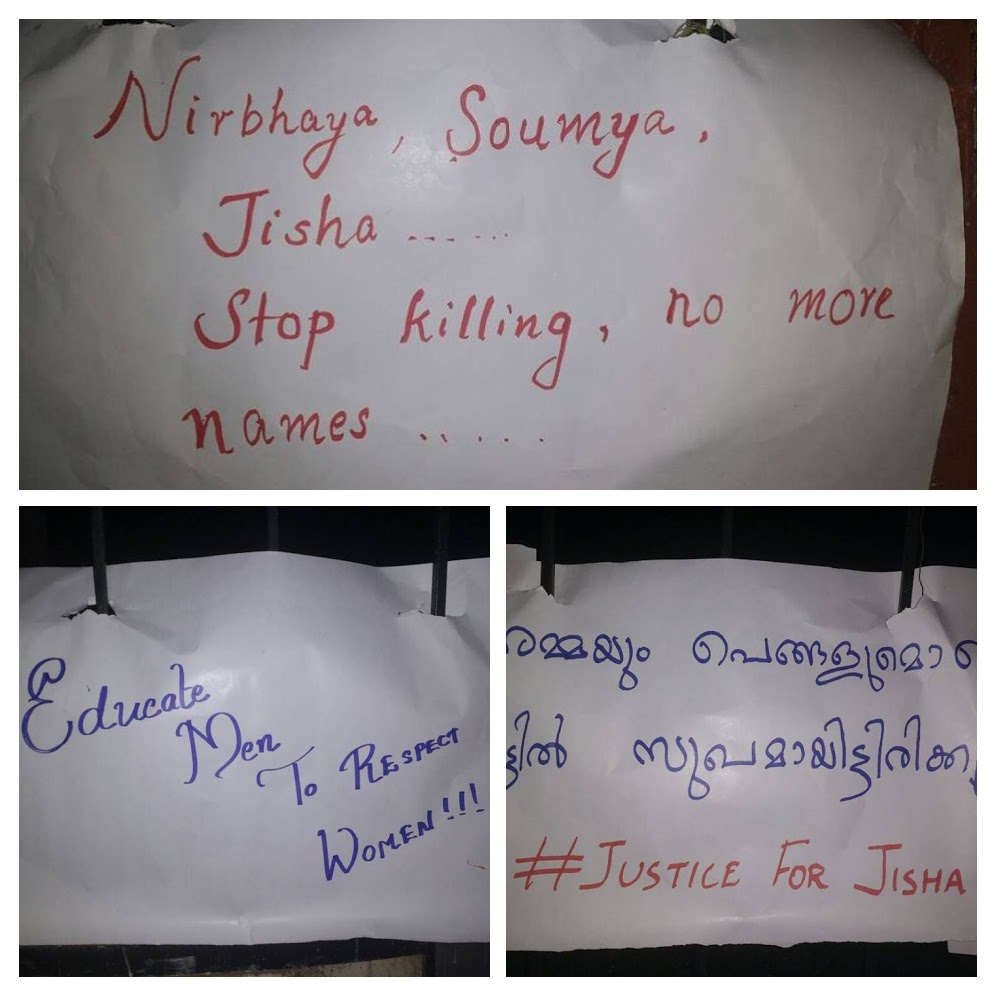 Nirbhaya, Soumya,
Jisha ......
Stop killing, no more
names .....
Educate
Men
To RESPECT
WOMEN!!!
പെങ്ങളുമൊ
സുഖമായിട്ടിരിക്ക
#JUSTICE FOR JISHA